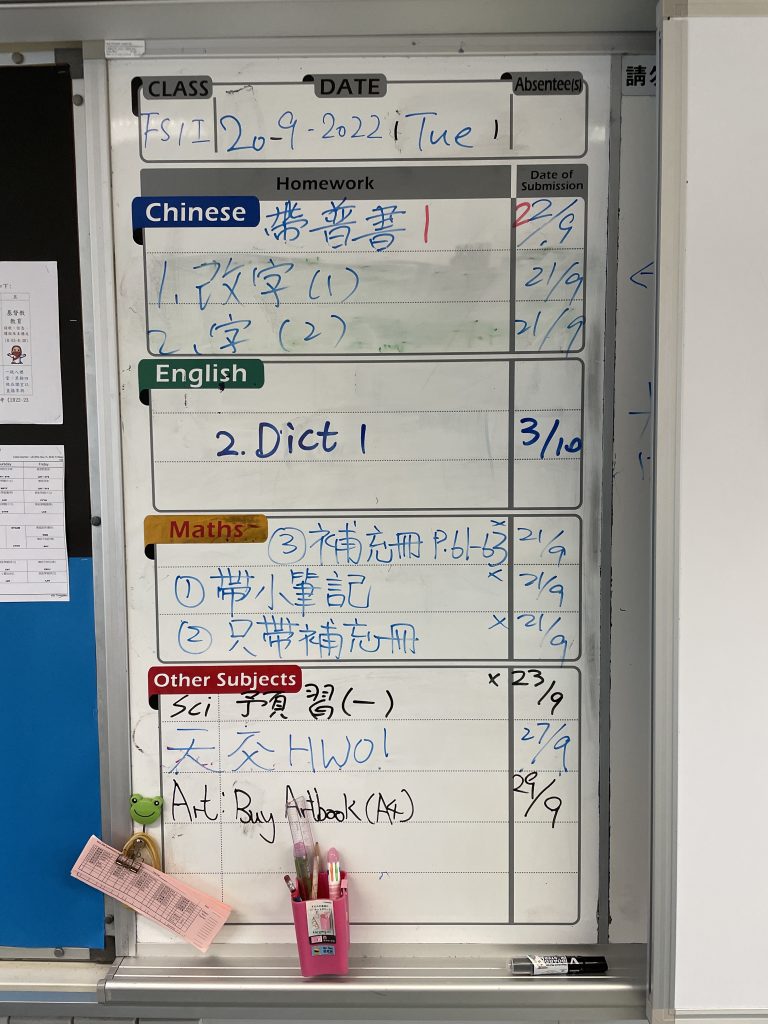 CLASS DATE Absentee(s)
20-9-2022 Tue
Homework Date of Submission
Chinese 帶普書 1 22/9
1. 改字(1) 21/9
2. 字(2) 21/9
English
2. Dict 1 3/10
Maths ③補充冊 P.61-63 x 21/9
①帶小筆記 x 21/9
②只帶補充冊 x 21/9
Other Subjects
Sci 預習(一) x 23/9
交HW01 27/9
Art: Buy Artbook (A4) 29/9
請勿
基督教
教育